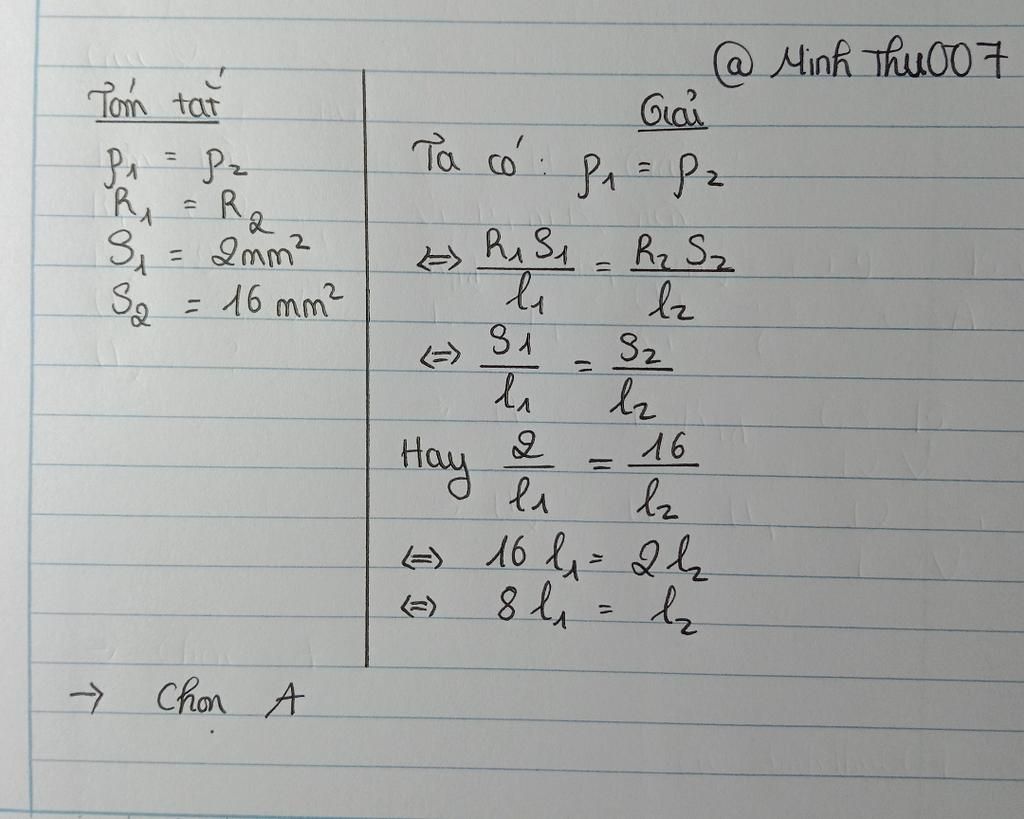 @ Minh Thu007
Tóm tắt
ρ1 = ρ2
R1 = R2
S1 = 2mm²
S2 = 16 mm²
Giải
Ta có: ρ1 = ρ2
<=> R1 S1 / l1 = R2 S2 / l2
<=> S1 / l1 = S2 / l2
Hay 2 / l1 = 16 / l2
<=> 16 l1 = 2 l2
<=> 8 l1 = l2
→ Chọn A